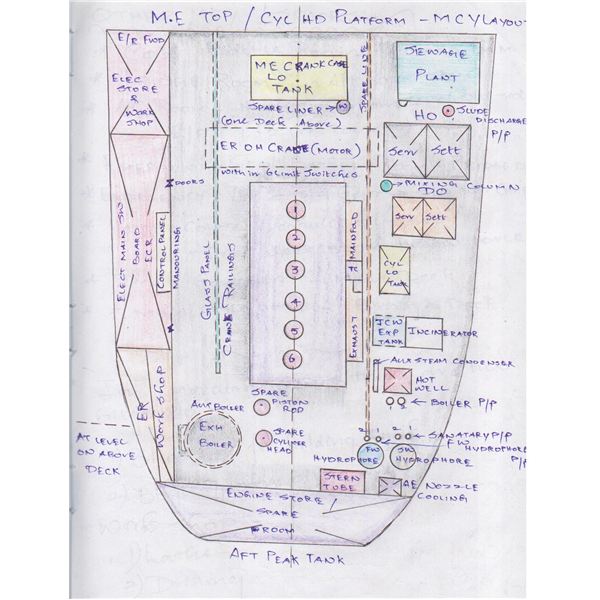 M.E TOP / CYL HD PLATFORM - MCYLAYOUT
E/R FWD
ELEC STORE & WORK SHOP
ME CRANKCASE
LO
TANK
SEWAGE
PLANT
SPARE LINE
SPARE LINER → W
(ONE DECK ABOVE)
HO
SLUDE DISCHARGE P/P
ER OH CRANE (MOTOR)
WITH IN 6 LIMIT SWITCHES
Serv
Sett
DOORS
MIXING COLUMN
DO
Serv
Sett
ELECT MAIN SW BOARD ECR
CONTROL PANEL
MANOURING
GLASS PANEL
CRANE RAILINGS
1
2
3
4
5
6
MAINFOLD
TC
EXHAUST
CYL
LO
TANK
JCW
EXP
TANK
INCINERATOR
AUX STEAM CONDENSER
HOT
WELL
1 2
BOILER P/P
ER WORK SHOP
AUX BOILER
EXH
BOILER
SPARE
PISTON
ROD
SPARE
CYLINDER
HEAD
2 1 2 1
SANATARY P/P
FW
HYDROPHORE
P/P
FW
SW
HYDROPHORE
HYDROPHORE
AT LEVEL
ON ABOVE
DECK
STERN
TUBE
AE NOZZLE
COOLING
ENGINE STORE /
SPARE
ROOM
AFT PEAK TANK